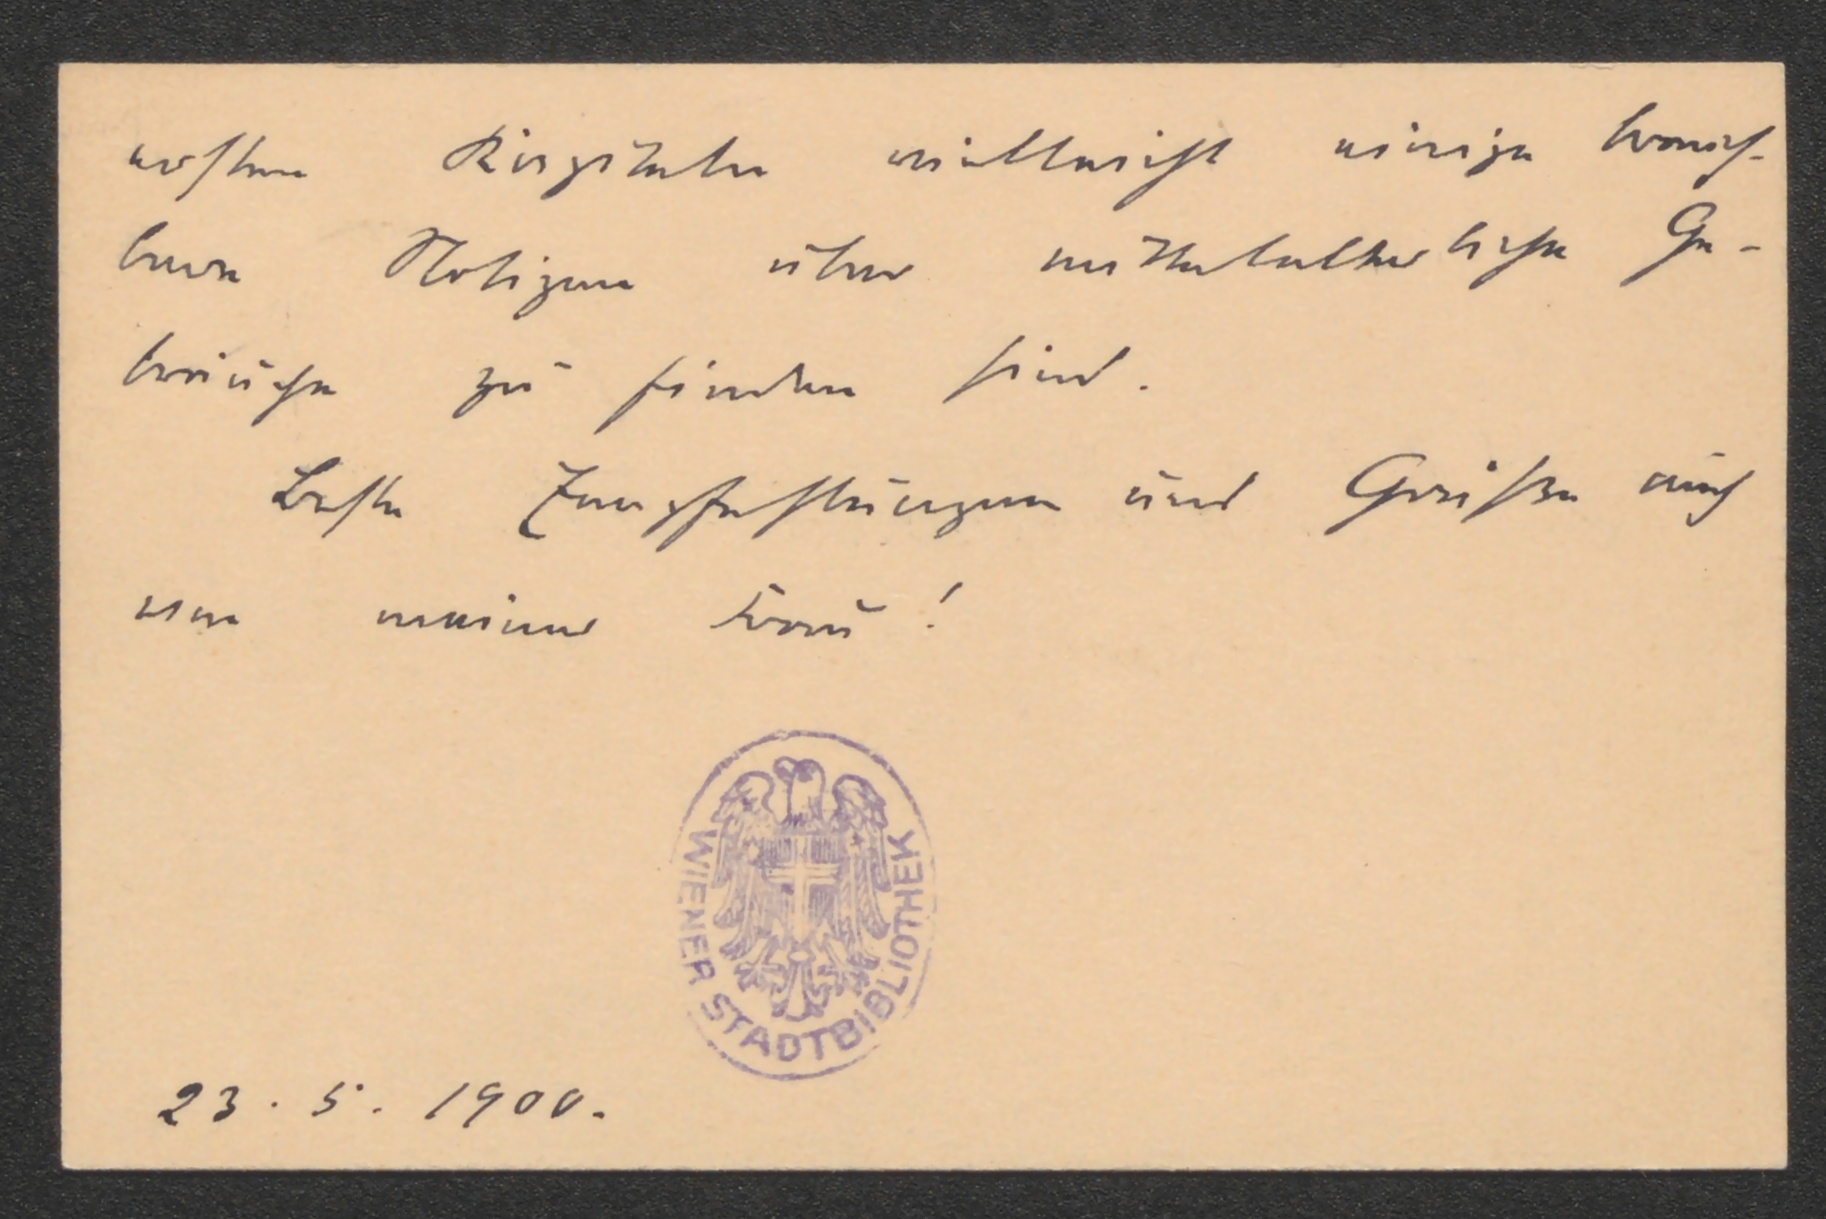 ersten Kapitel vielleicht einige brauch-
bare Notizen über mittelalterliche Ge-
bräuche zu finden sind.
Beste Empfehlungen und Grüße auch
von meiner Frau!
WIENER STADTBIBLIOTHEK
23. 5. 1900.